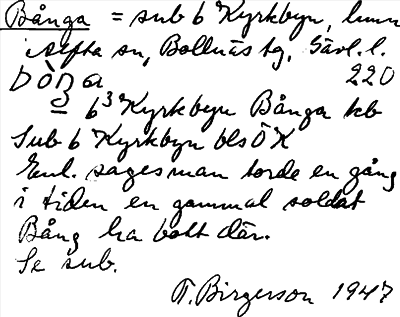 Bånga = sub 6 Kyrkbyn, hmn
i Alfta sn, Bollnäs tg, Gävl. l.
220
= 6³ Kyrkbyn Bånga kb
Sub 6 Kyrkbyn bls Ö K
Enl. sagesman torde en gång
i tiden en gammal soldat
Bång ha bott där.
Se sub.
T. Birgerson 1947